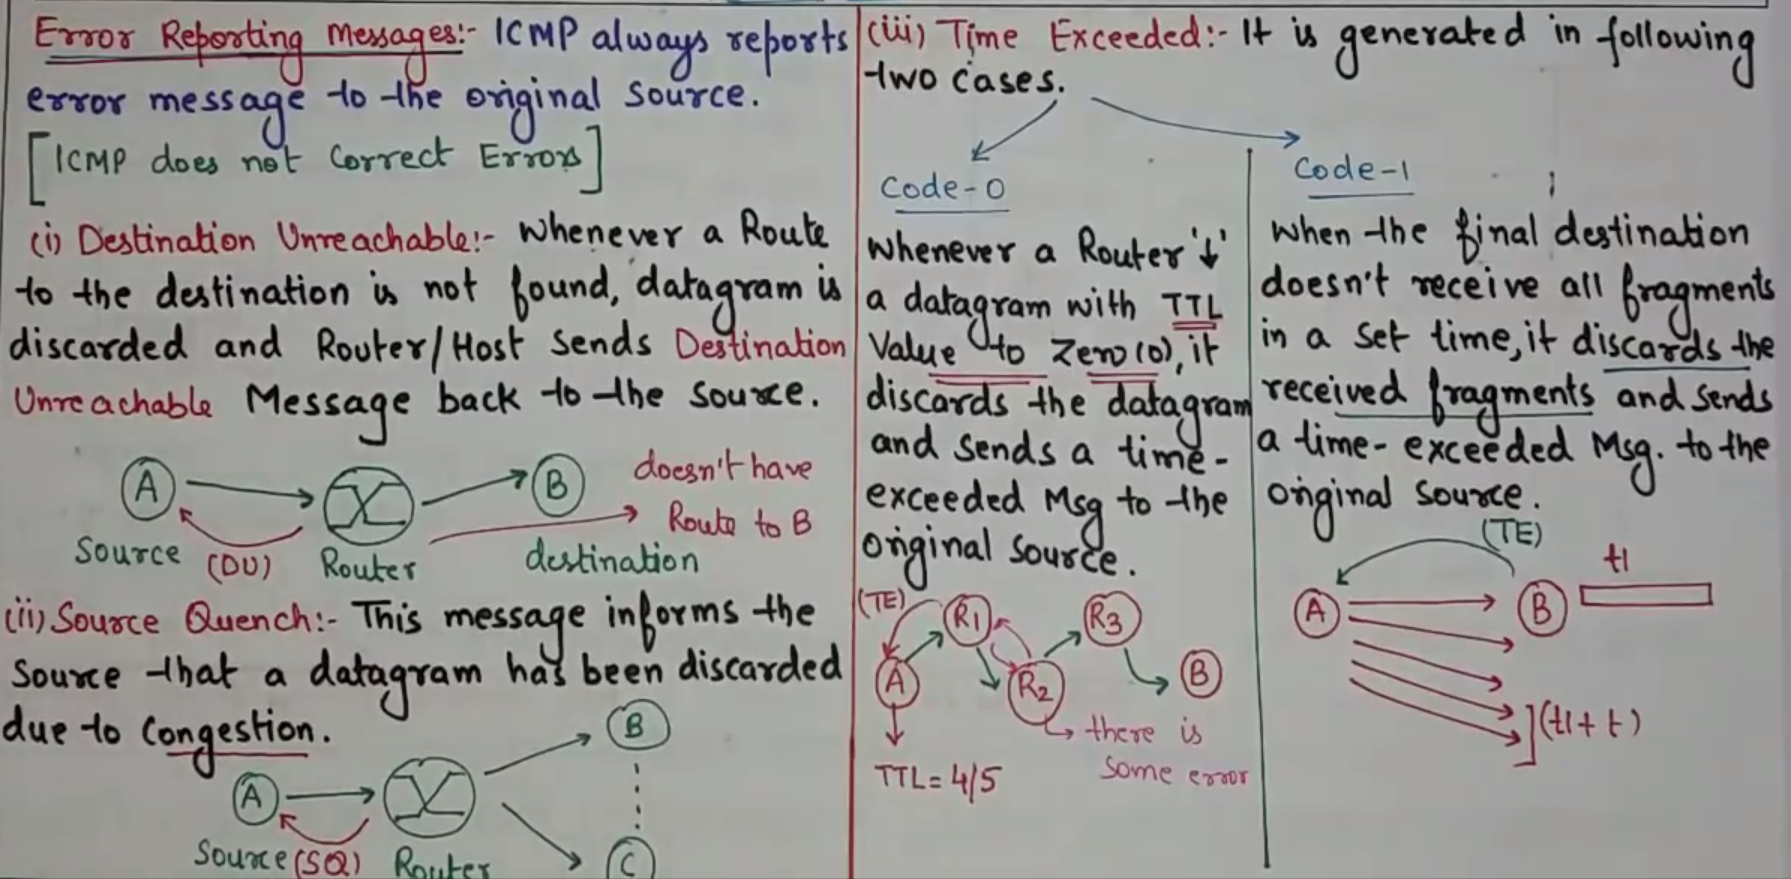 Error Reporting Messages:- ICMP always reports
error message to the original source.
[ICMP does not Correct Errors]
(i) Destination Unreachable:- Whenever a Route
to the destination is not found, datagram is
discarded and Router/Host sends Destination
Unreachable Message back to the source.
A
B
doesn't have
Route to B
Source
(DU)
Router
destination
(ii) Source Quench:- This message informs the
Source that a datagram has been discarded
due to Congestion.
B
A
Source (SQ)
Router
C
(iii) Time Exceeded:- It is generated in following
two cases.
Code-0
Whenever a Router '↓'
a datagram with TTL
Value to Zero(0), it
discards the datagram
and sends a time-
exceeded Msg to the
original source.
(TE)
R1
R3
A
R2
B
there is
some error
TTL = 4/5
Code-1
When the final destination
doesn't receive all fragments
in a set time, it discards the
received fragments and sends
a time-exceeded Msg. to the
original source.
(TE)
t1
A
B
(t1+t)